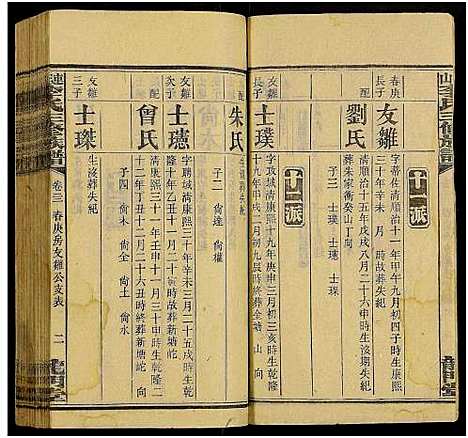 山李氏三修族譜
龍門堂
十一派
春庚
長子
友雛
字蓄佐清順治十一年甲午九月初四子時生康熙
三十年辛未三月
時故葬失紀
配
劉氏
清順治十五年戊戌八月二十六日申時生沒期失紀
葬朱家衝癸山丁向
子三 士璞 士璁 士琛
十二派
友雛
長子
士璞
字攻城清康熙十九年庚申三月初三亥時生乾隆
十九年甲戌
月初九辰時終葬金塘
山 向
配
朱氏
生沒葬失紀
子二 尚達 尚權
友雛
次子
士璁
字聘城清康熙三十年辛未三月二十五戌時生乾
隆十年乙丑十一月二十
時故葬新塘坨
配
曾氏
清康熙三十一年壬申十一月
時生乾隆二
十二年丁丑十二月二十六丑時終葬新塘坨 向
子四 尚木 尚金 尚土 尚水
友雛
三子
士琛
生沒葬失紀
連李氏三修族譜
卷三 春庚房友雛公支表
二
龍門堂